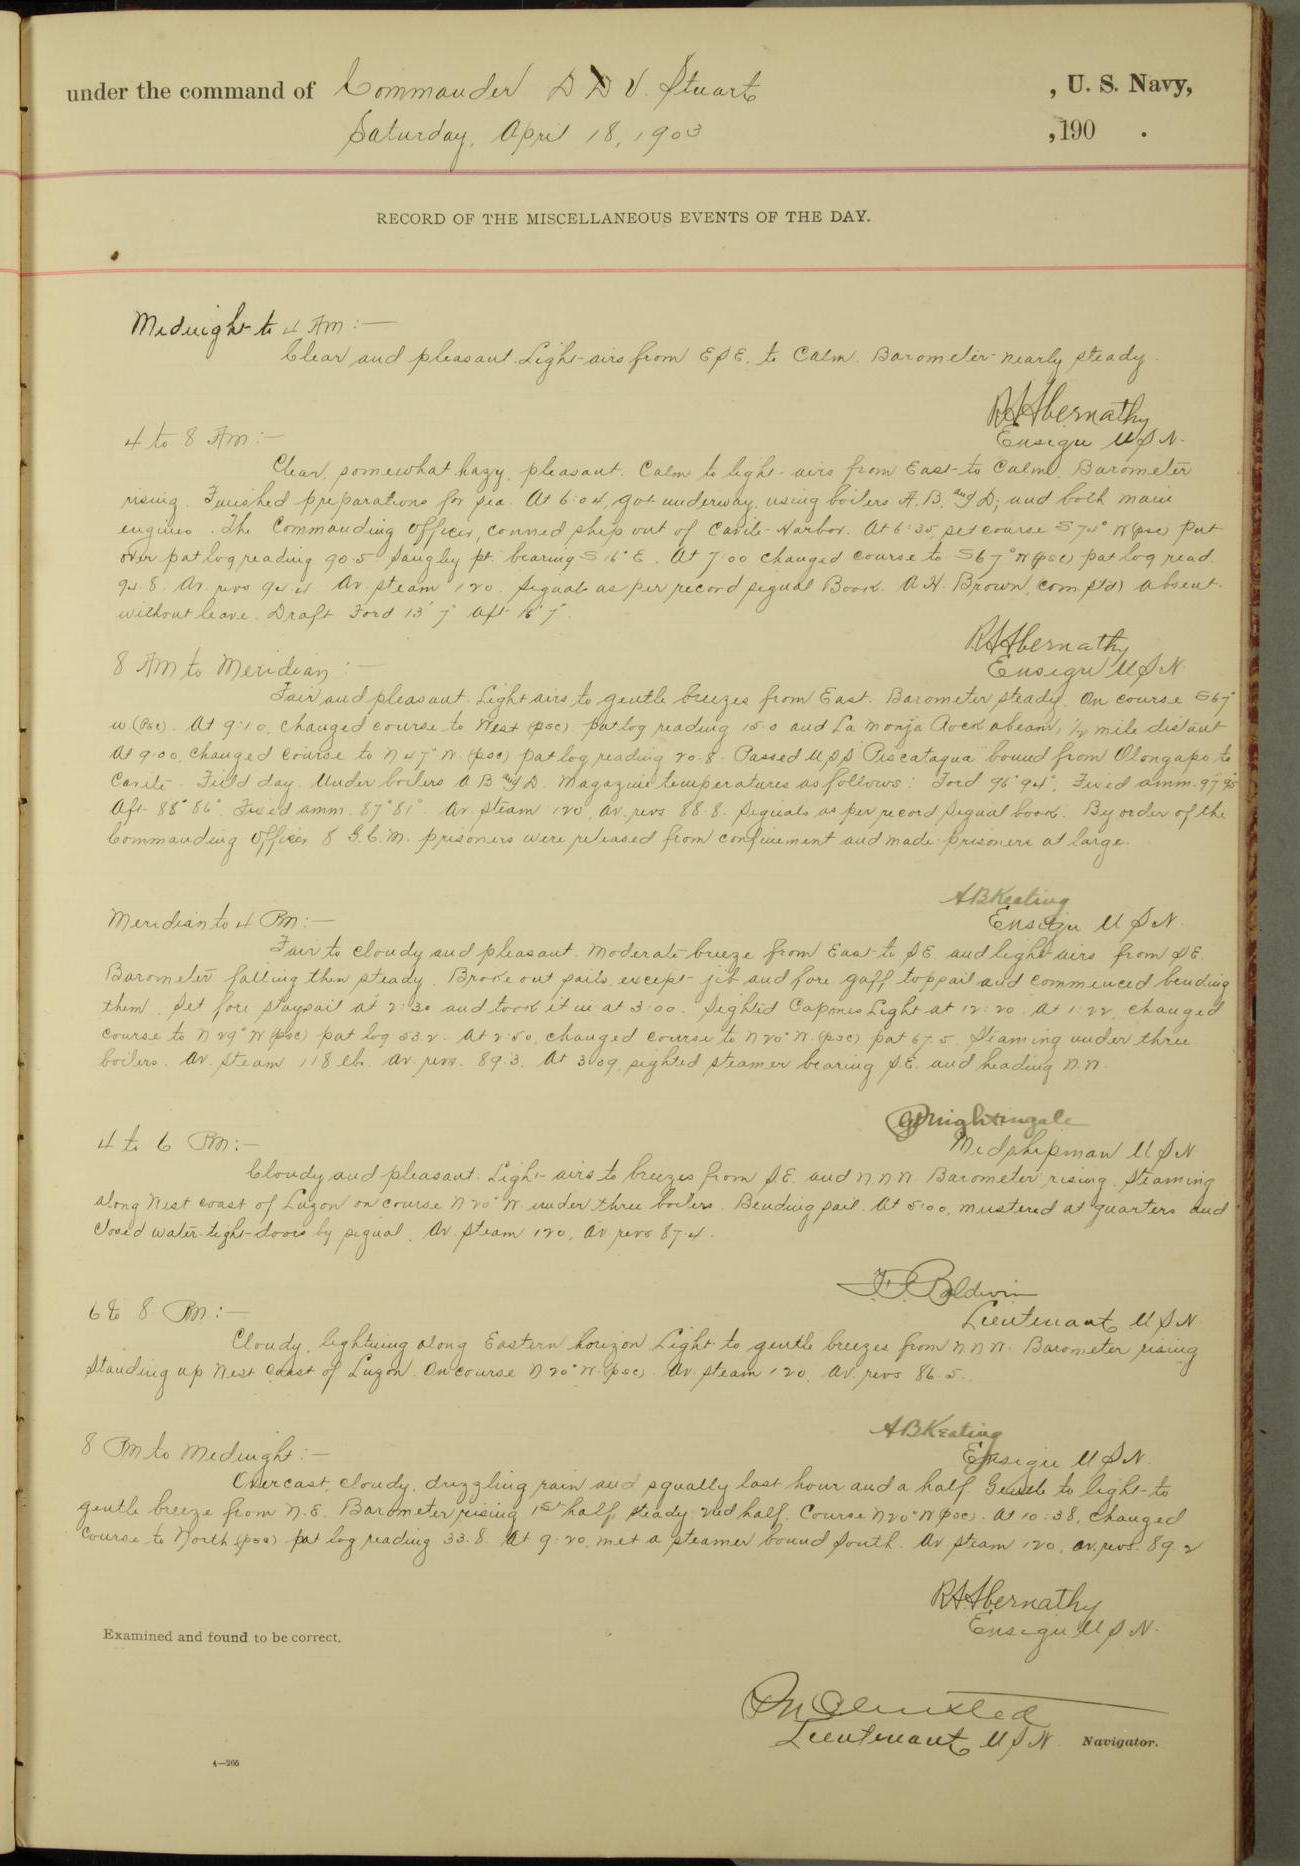 under the command of Commander D D V. Stuart , U. S. Navy,
Saturday, April 18, 1903 ,190 .
RECORD OF THE MISCELLANEOUS EVENTS OF THE DAY.
Midnight to 4 AM:—
Clear and pleasant. Light airs from ESE. to Calm. Barometer nearly steady.
R A Abernathy
Ensign U S N.
4 to 8 AM:—
Clear, somewhat hazy, pleasant. Calm to light airs from East to Calm. Barometer
rising. Finished preparations for sea. At 6:04, got underway, using boilers A. B. and D; and both main
engines. The Commanding Officer, conned ship out of Cavite Harbor. At 6:35, set course S 74° W (psc) put
over pat log reading 90.5 Sangley pt. bearing S 16° E. At 7:00 changed course to S 67° W (psc) pat log read.
94.8. Av. revs 94.4 Av. steam 120. Signals as per record signal Book. A. H. Brown, com. std) absent
without leave. Draft Ford 13' 7" Aft 16' 7".
R A Abernathy
Ensign U S N
8 AM to Meridian:—
Fair and pleasant. Light airs to gentle breezes from East. Barometer steady. On course S 67°
W (psc). At 9:10, changed course to West (psc) pat log reading 15.0 and La Monja Rock abeam, 1/2 mile distant
At 9:00, changed course to N 47° W. (psc) pat log reading 20.8. Passed U S S Piscataqua bound from Olongapo to
Cavite. Field day. Under boilers A B and D. Magazine temperatures as follows: Ford 96° 94°, Fixed amm. 97° 95°
Aft 88° 86° Fixed amm. 87° 81° Av. steam 120, av. revs 88.8. Signals as per record signal book. By order of the
Commanding Officer 8 G. C. M. prisoners were released from confinement and made prisoners at large.
A B Keating
Ensign U S N.
Meridian to 4 PM:—
Fair to cloudy and pleasant. Moderate breeze from East to SE. and light airs from SE.
Barometer falling then steady. Broke out sails, except jib and fore gaff topsail and commenced bending
them. Set fore staysail at 2:30 and took it in at 3:00. Sighted Capones Light at 12:20. At 1:22, changed
course to N 29° W (psc) pat log 53.2. At 2:50, changed course to N 20° W. (psc) pat 67.5. Steaming under three
boilers. Av. steam 118 lbs. av. revs. 89.3. At 3:09, sighted steamer bearing S.E. and heading N. W.
Nightingale
Midshipman U S N
4 to 6 PM:—
Cloudy and pleasant. Light airs to breezes from S.E. and N. N. W. Barometer rising. Steaming
along West coast of Luzon on course N 20° W under three boilers. Bending sail. At 5:00, mustered at quarters and
closed water-tight doors by signal. Av. steam 120, Av. revs 87.4.
Baldwin
Lieutenant U S N
6 to 8 PM:—
Cloudy, lightning along Eastern horizon Light to gentle breezes from N N W. Barometer rising
Standing up West Coast of Luzon. On course N 20° W. (psc). Av. steam 120. Av. revs 86.5.
A B Keating
Ensign U S N.
8 PM to Midnight:—
Overcast, cloudy, drizzling rain and squally last hour and a half. Gentle to light to
gentle breeze from N. E. Barometer rising 1st half, steady 2nd half. Course N 20° W (psc). At 10:38, changed
course to North (psc) pat log reading 33.8. At 9:20, met a steamer bound South. Av. steam 120, av. revs. 89.2
R A Abernathy
Ensign U S N.
Examined and found to be correct.
Olmsted
Lieutenant U S N Navigator.
4—266